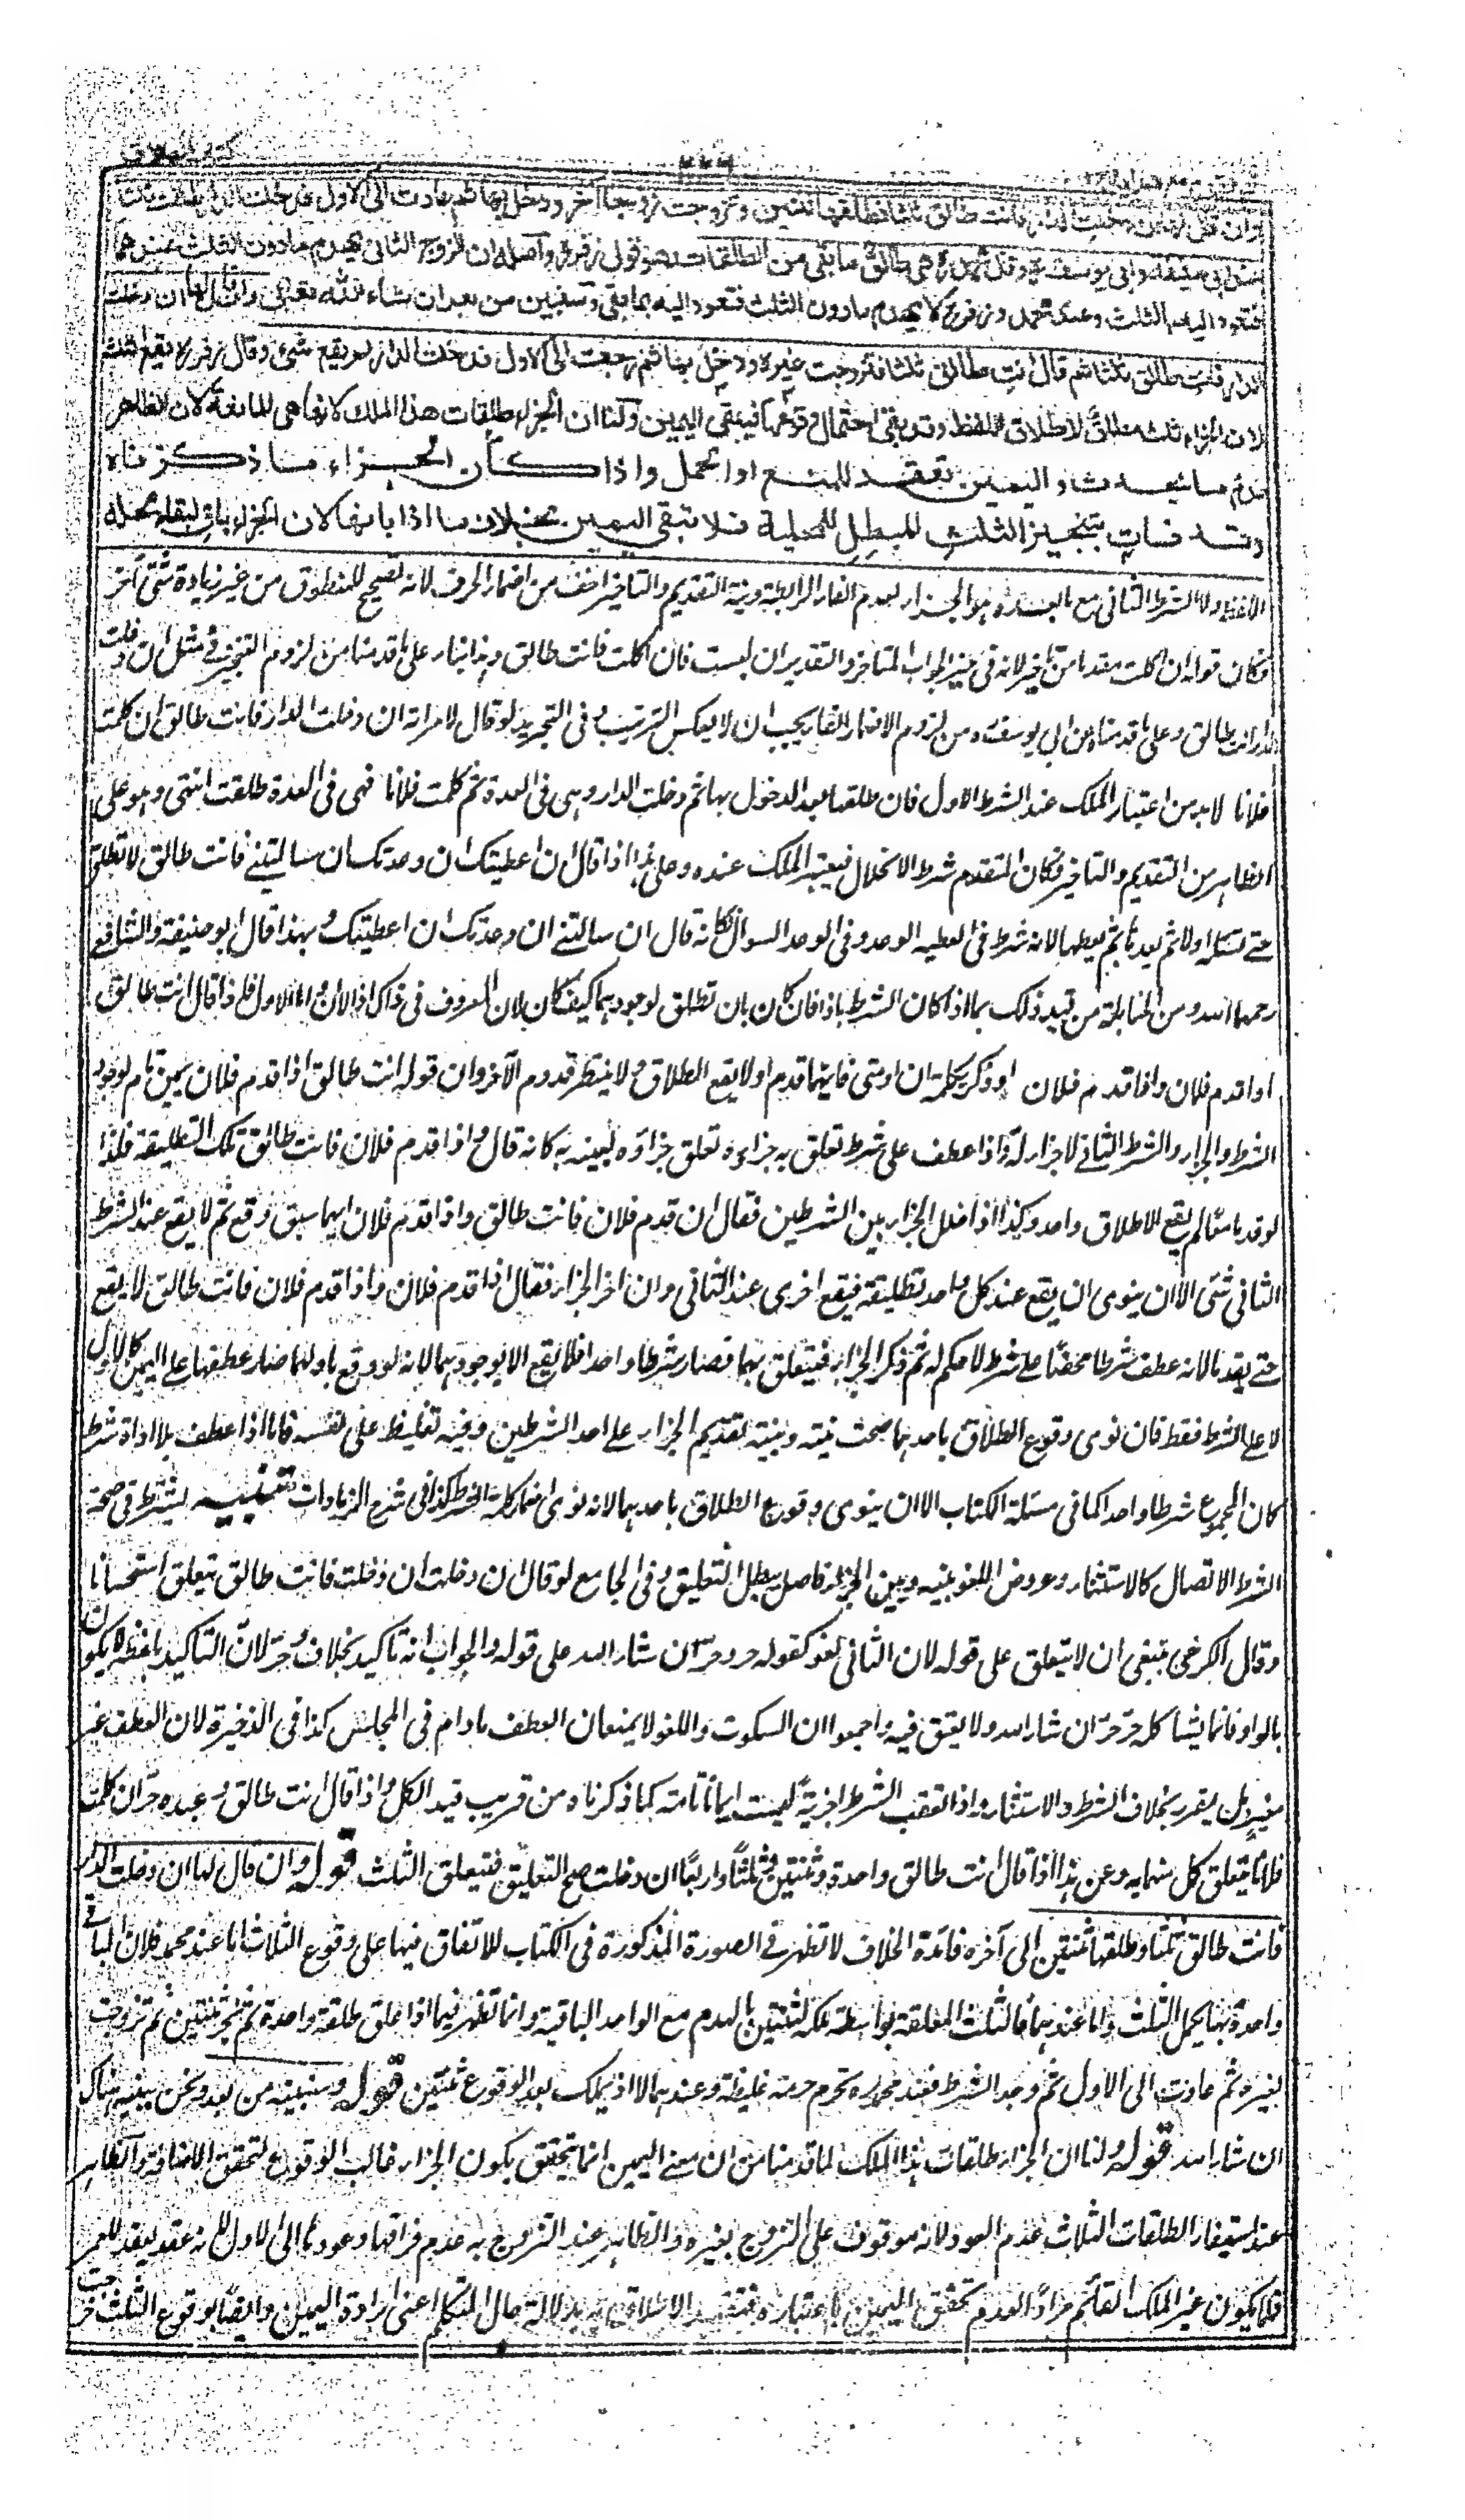 وان قال لها ان دخلت الدار فانت طالق ثلثا فطلقها ثنتين وتزوجت زوجا آخر ودخل بها ثم عادت الى الاول فدخلت الدار طلقت ثلثا
عند ابى حنيفة وابى يوسف وقال محمد هى طالق ما بقى من الطلقات وهو قول زفر واصله ان الزوج الثانى يهدم ما دون الثلث عندهما
فتعود اليه بالثلث وعند محمد وزفر لا يهدم ما دون الثلث فتعود اليه بما بقى وسنبين من بعد ان شاء الله تعالى وان قال لها ان دخلت
الدار فانت طالق ثلثا ثم قال انت طالق ثلثا فتزوجت غيره ودخل بها ثم رجعت الى الاول فدخلت الدار لم يقع شئ وقال زفر يقع الثلث
لان الجزاء ثلث مطلق لاطلاق اللفظ وقد بقى احتمال وقوعها فيبقى اليمين ولنا ان الجزاء طلقات هذا الملك لانها هى المانعة لان الظاهر
عدم ما يحدث واليمين تعقد للمنع او الحمل واذا كان الجزاء ما ذكرناه
وقد فات بتنجيز الثلث المبطل للمحلية فلا تبقى اليمين بخلاف ما اذا ابانها لان الجزاء باق لبقاء محله
الاول فلا الشرط الثانى مع ما بعده هو الجزاء لعدم الفاء الرابطة ونية التقديم والتاخير اخف من اضمار الحرف لانه تصحيح للمنطوق من غير زيادة شئ آخر
فكان قوله ان اكلت مقدما من تاخير لانه فى حيز الجواب المتاخر والتقدير ان لبست فان اكلت فانت طالق وهذا بناء على ما قدمنا من لزوم التنجيز فى مثل ان دخلت
الدار انت طالق وعلى ما قدمناه عن ابى يوسف من لزوم الاضمار الفاء يجب ان لا يعكس الترتيب وفى التجريد لو قال لامراته ان دخلت الدار فانت طالق ان كلمت
فلانا لا بد من اعتبار الملك عند الشرط الاول فان طلقها بعد الدخول بها ثم دخلت الدار وهى فى العدة ثم كلمت فلانا فهى فى العدة طلقت انتهى وهو على
الظاهر من التقديم والتاخير فكان المتقدم شرط الانحلال فيعتبر الملك عنده وعلى هذا اذا قال ان اعطيتك ان وعدتك ان سالتنى فانت طالق لا تطلق
حتى تسئله اولا ثم يعدها ثم يعطيها لانه شرط فى العطية الوعد وفى الوعد السوال فكانه قال ان سالتنى ان وعدتك ان اعطيتك وبهذا قال ابو حنيفة والشافعى
رحمهما الله ومن الحنابلة من قيد ذلك بما اذا كان الشرط باذا فان كان بان تطلق لوجودهما كيف كان لان المعروف فى ذاك اذا لا ان واما الاول فاذا قال انت طالق
اذا قدم فلان واذا قدم فلان او ذكر بكلمة ان او متى فايهما قدم اولا يقع الطلاق ولا ينتظر قدوم الآخر وان قوله انت طالق اذا قدم فلان يمين تام لوجود
الشرط والجزاء والشرط الثانى لا جزاء له واذا عطف على شرط تعلق به جزاءه تعلق جزاؤه بعينه به كانه قال واذا قدم فلان فانت طالق تلك التطليقة فلذا
لو قدما معا لم يقع الا طلاق واحد وكذا اذا خلل الجزاء بين الشرطين فقال ان قدم فلان فانت طالق واذا قدم فلان ايهما سبق وقع ثم لا يقع عند الشرط
الثانى شئ الا ان ينوى ان يقع عند كل واحد تطليقة فيقع اخرى عند الثانى وان اخر الجزاء فقال اذا قدم فلان واذا قدم فلان فانت طالق لا يقع
حتى يقدما لانه عطف شرطا محضا على شرط لا حكم له ثم ذكر الجزاء فيتعلق بهما فصار شرطا واحدا فلا يقع الا بوجودهما لانه لو وقع باولهما صار عطفها على اليمين كالاول
لا على الشرط فقط فان نوى وقوع الطلاق باحدهما صحت نيته ونيته تقديم الجزاء على احد الشرطين وفيه تغليظ على نفسه فاما اذا عطف بلا اداة شرط
كان المجموع شرطا واحدا كما فى مسئلة الكتاب الا ان ينوى وقوع الطلاق باحدهما لانه نوى اضمار كلمة الشرط كذا فى شرح الزيادات تنبيه يشترط فى صحة
الشرط الاتصال كالاستثناء وعروض اللغو بينه وبين الجزاء فاصل يبطل التعليق وفى الجامع لو قال ان دخلت ان دخلت فانت طالق يتعلق استحسانا
وقال الكرخى ينبغى ان لا يتعلق على قوله لان الثانى لغو كقوله حر وحر ان شاء الله على قوله والجواب انه تاكيد بخلاف وحر لان التاكيد بلفظه لا يكون
بالواو فانما يشاكله حر حر ان شاء الله ولا يعتق فيه واجمعوا ان السكوت واللغو لا يمنعان العطف ما دام فى المجلس كذا فى الذخيرة لان العطف غير
مغير بل مقرر بخلاف الشرط والاستثناء واذا تعقب الشرط اجزية ليست ايمانا تامة كما ذكرناه من قريب قيد الكل واذا قال انت طالق وعبده حر ان كلمت
فلانا يتعلق كل منهما به وعن هذا اذا قال انت طالق واحدة وثنتين وثلثا واربعا ان دخلت صح التعليق فيتعلق الثلث قوله وان قال لها ان دخلت الدار
فانت طالق ثلثا وطلقها ثنتين الى آخره فائدة الخلاف لا تظهر فى الصورة المذكورة فى الكتاب للاتفاق فيها على وقوع الثلاث اما عند محمد فلان الباقى
واحدة بها يكمل الثلث واما عندهما فالثلث المعلقة بواسطة ملكه الثنتين بالهدم مع الواحد الباقية وانما تظهر فيما اذا علق طلقة واحدة ثم نجز ثنتين ثم تزوجت
بغيره ثم عادت الى الاول ثم وجد الشرط فعند محمد تحرم حرمة غليظة وعندهما لا اذ يملك بعد الوقوع ثنتين قوله وسنبينه من بعد ونحن نبينه هناك
ان شاء الله قوله ولنا ان الجزاء طلقات هذا الملك لما قدمنا من ان معنى اليمين انما يتحقق بكون الجزاء غالب الوقوع لتحقق الاخافة والظاهر
عند استيفاء الطلقات الثلاث عدم العود لانه موقوف على التزوج بغيره والظاهر عند التزوج به عدم فراقها وعودها الى الاول لانه عقد يعقد للعمر
فلا يكون غير الملك القائم مرادا لعدم تحقق اليمين باعتباره فتقيد الاطلاق به بدلالة حال المتكلم اعنى ارادة اليمين وايضا بوقوع الثلث خرجت